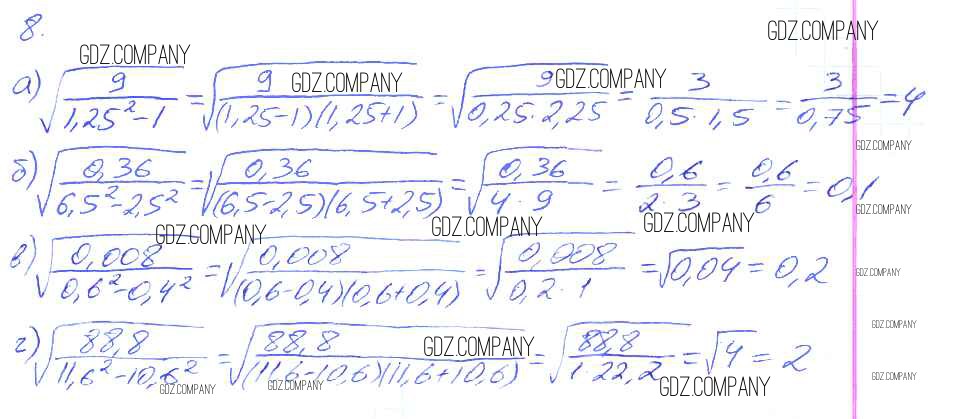 8.
GDZ.COMPANY GDZ.COMPANY
а) √(9/(1,25²-1)) = √(9/((1,25-1)(1,25+1))) = √(9/(0,25·2,25)) = 3/(0,5·1,5) = 3/0,75 = 4
GDZ.COMPANY GDZ.COMPANY
GDZ.COMPANY
б) √(0,36/(6,5²-2,5²)) = √(0,36/((6,5-2,5)(6,5+2,5))) = √(0,36/(4·9)) = 0,6/(2·3) = 0,6/6 = 0,1
GDZ.COMPANY
GDZ.COMPANY GDZ.COMPANY GDZ.COMPANY
в) √(0,008/(0,6²-0,4²)) = √(0,008/((0,6-0,4)(0,6+0,4))) = √(0,008/(0,2·1)) = √0,04 = 0,2
GDZ.COMPANY
GDZ.COMPANY
г) √(88,8/(11,6²-10,6²)) = √(88,8/((11,6-10,6)(11,6+10,6))) = √(88,8/(1·22,2)) = √4 = 2
GDZ.COMPANY
GDZ.COMPANY GDZ.COMPANY GDZ.COMPANY GDZ.COMPANY